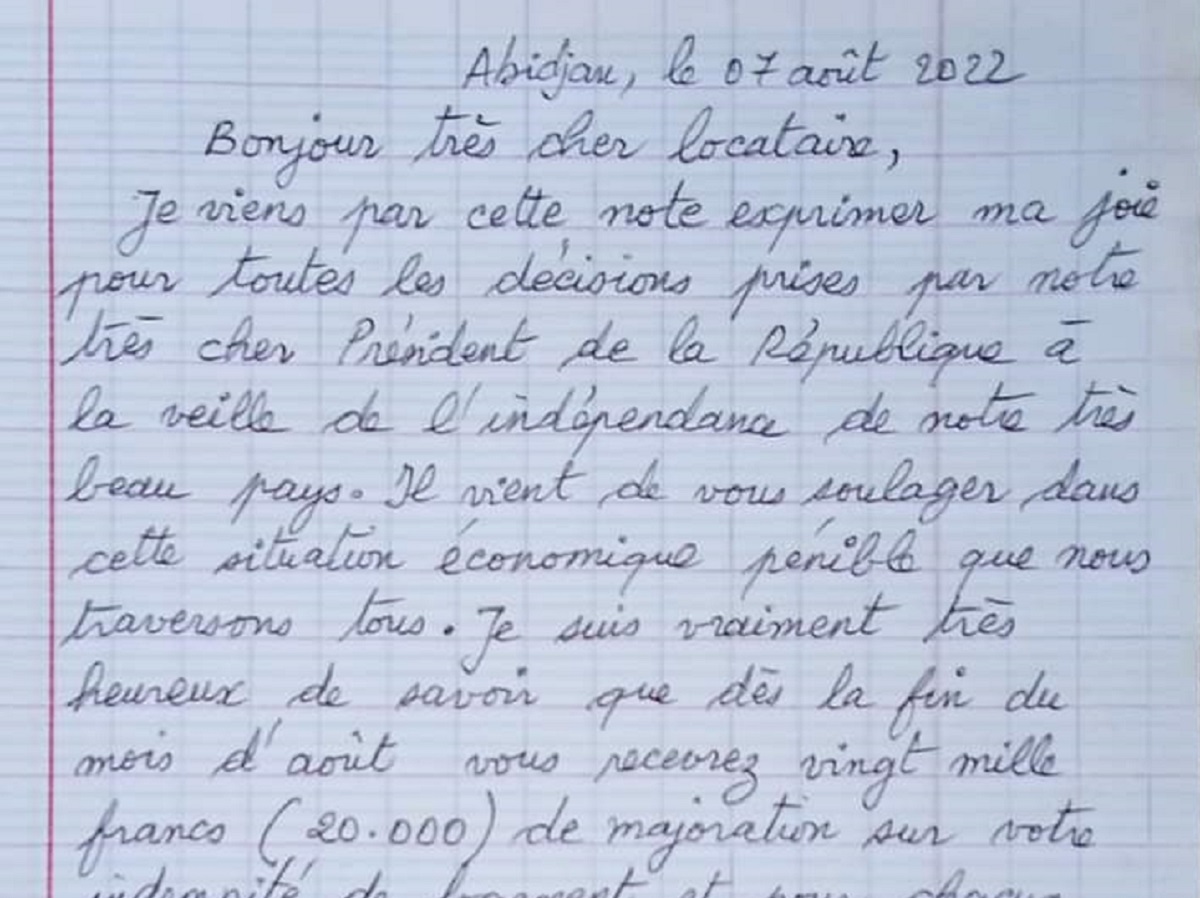 Abidjan, le 07 août 2022
Bonjour très cher locataire,
Je viens par cette note exprimer ma joie
pour toutes les décisions prises par notre
très cher Président de la République à
la veille de l'indépendance de notre très
beau pays. Il vient de vous soulager dans
cette situation économique pénible que nous
traversons tous. Je suis vraiment très
heureux de savoir que dès la fin du
mois d'août vous recevrez vingt mille
francs (20.000) de majoration sur votre
indemnité de logement et pour chacun